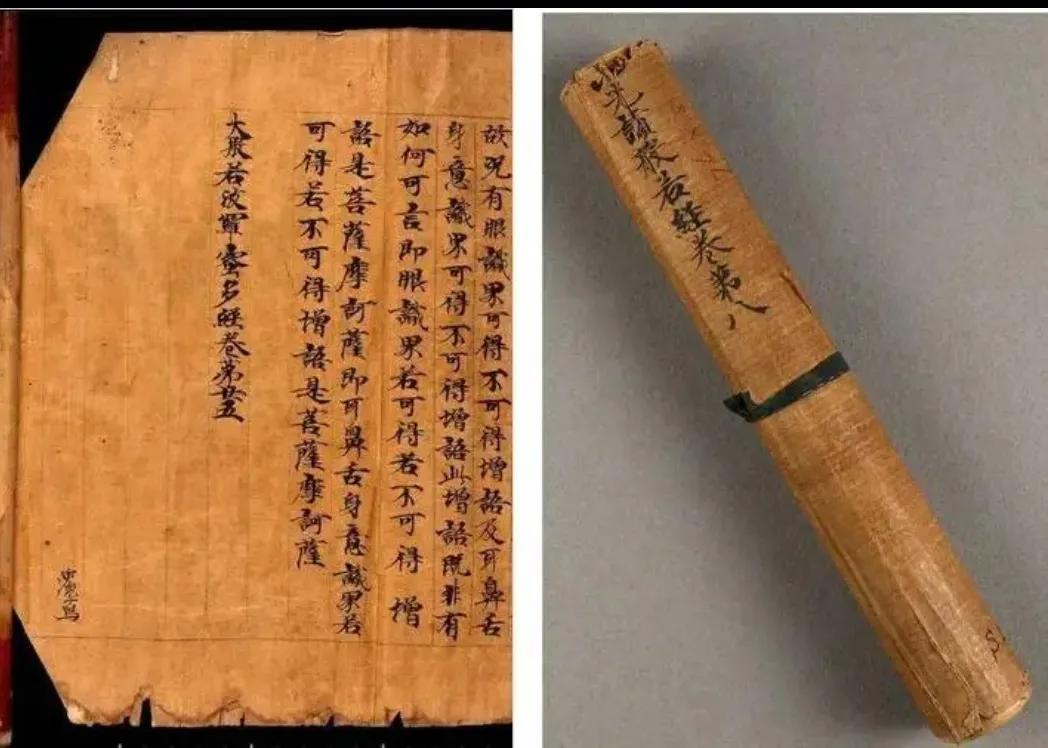 故況有眼識界可得不可得增語及耳鼻舌
身意識界可得不可得增語此增語既非有
如何可言即眼識界若可得若不可得增
語是菩薩摩訶薩即耳鼻舌身意識界若
可得若不可得增語是菩薩摩訶薩
大般若波羅蜜多經卷第廿五
寫
光讃般若經卷第八
S.